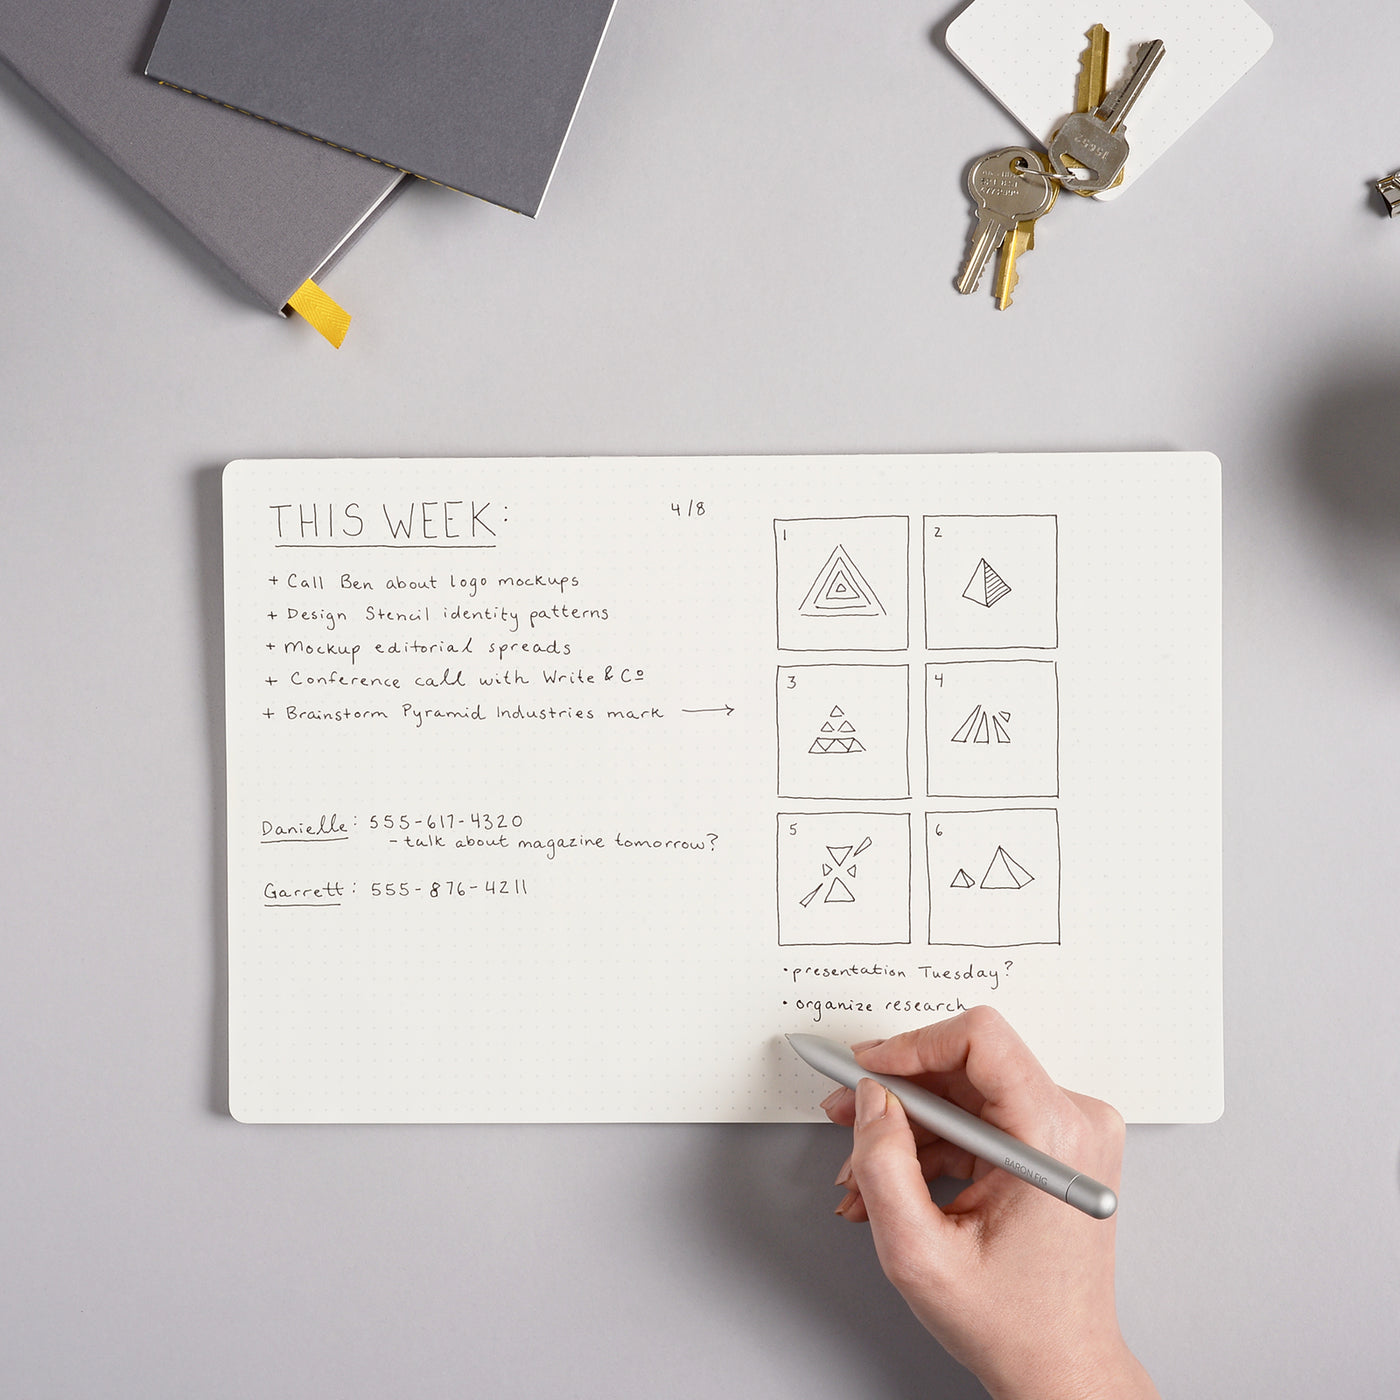 THIS WEEK:
4/8
+ Call Ben about logo mockups
+ Design Stencil identity patterns
+ Mockup editorial spreads
+ Conference call with Write & Cº
+ Brainstorm Pyramid Industries mark →
Danielle: 555-617-4320
- talk about magazine tomorrow?
Garrett: 555-876-4211
1
2
3
4
5
6
• presentation Tuesday?
• organize research
BARON FIG
15652